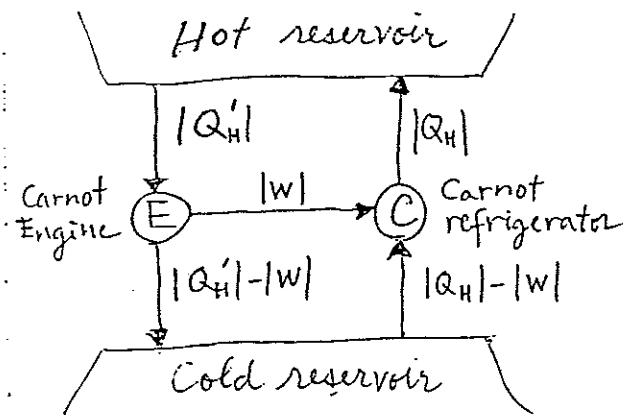 Hot reservoir
|Q'H|
|QH|
Carnot
Engine
E
|W|
C
Carnot
refrigerator
|Q'H|-|W|
|QH|-|W|
Cold reservoir